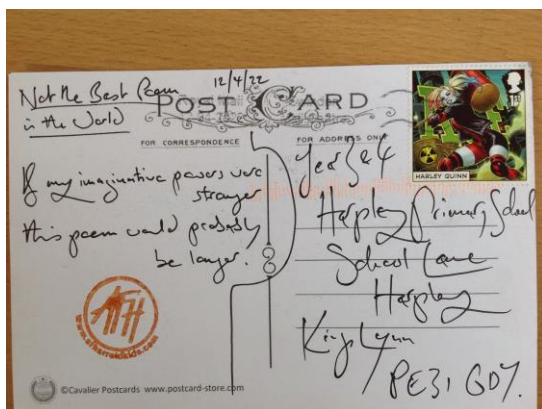 Not the Best Poem
in the World
12/4/22
POST CARD
FOR CORRESPONDENCE
FOR ADDRESS ONLY
1st
HARLEY QUINN
If my imaginative powers were
stronger
this poem would probably
be longer.
Year 3 & 4
Harpley Primary School
School Lane
Harpley
Kings Lynn
PE31 6DY.
AFH
www.afharrold.com
©Cavalier Postcards www.postcard-store.com